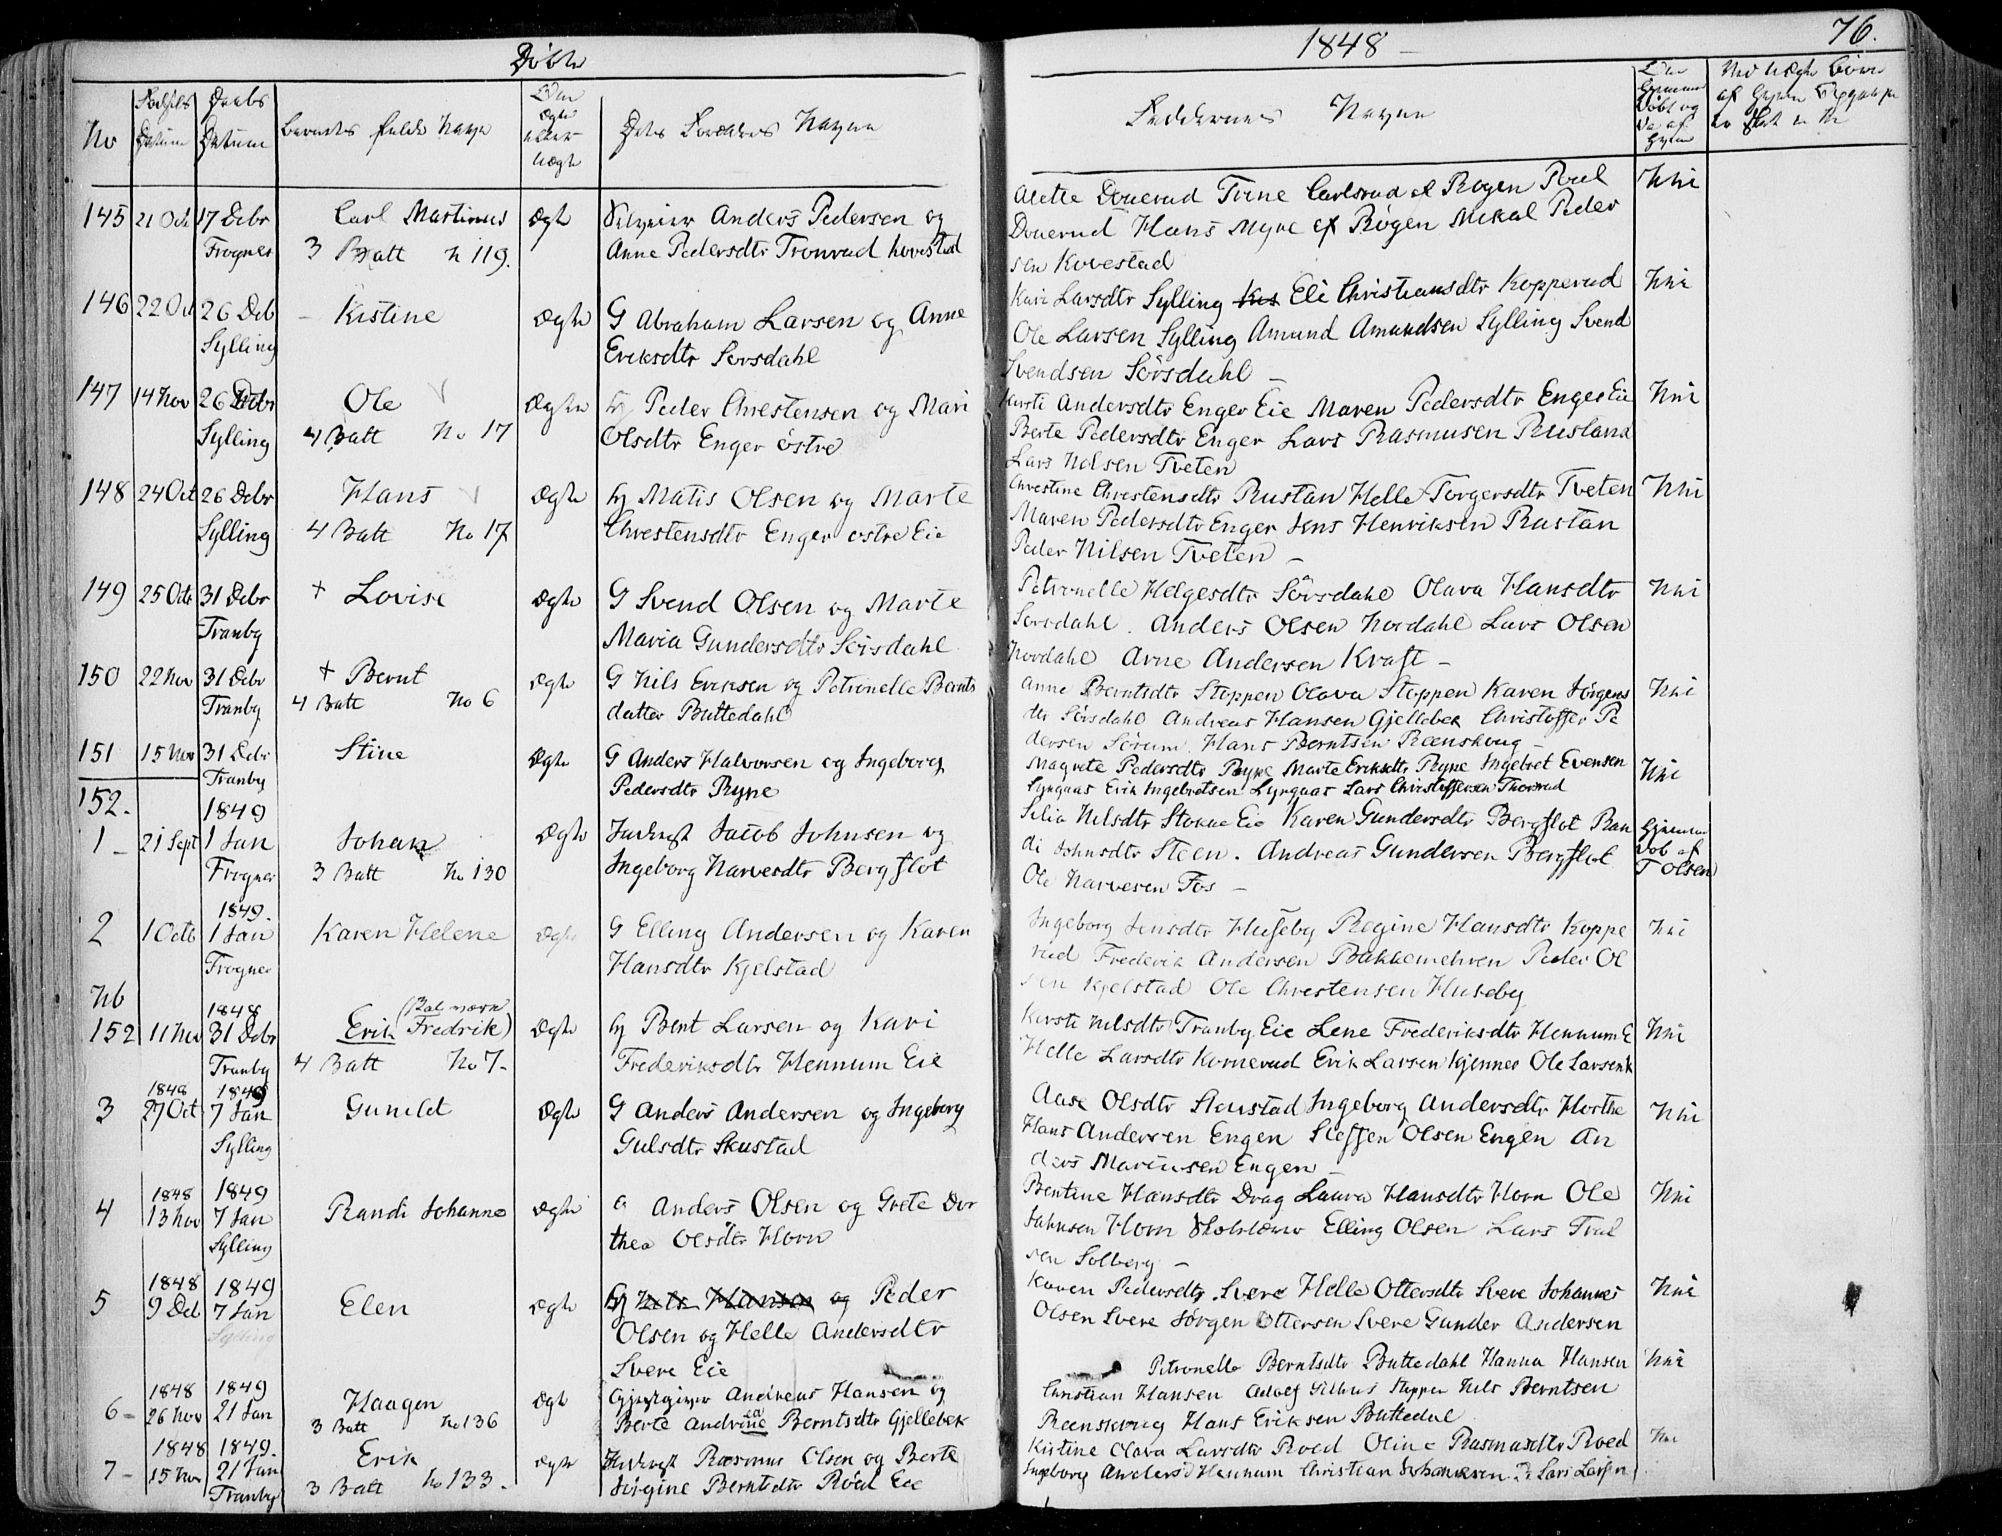 Døbte
1848 –
76.
No
Datum
Daabs Datum
Barnets fulde Navn
ægte eller uægte
Forældres Navne
Faddernes Navne
145 21 Oct 17 Debr Carl Martinus Ægte Anders Pedersen og
Frogner 3 Batt N 119. Anne Pedersdtr Tronrud hovestad
Alette Trine Carlsrud af Røgen Poul
Hans Myre af Røgen Mikal Peder
sen Kovestad
146 22 Oct 26 Deb – Kistine Ægte G Abraham Larsen og Anne
Sylling Eriksdtr Sørsdahl
Kari Larsdtr Sylling Eli Christiansdtr Kopperud
Ole Larsen Sylling Amund Amundsen Sylling Svend
Svendsen Sörsdahl –
147 14 Nov 26 Debr Ole Ægte hj Peder Chrestensen og Mari
Sylling 4 Batt No 17 Olsdtr Enger østre
Kirsti Andersdtr Enger Eie Maren Pedersdtr Enger Eie
Berte Pedersdtr Enger Lars Rasmusen Rustand
Lars Nelsen Tveten
148 24 Oct 26 Debr Hans Ægte hj Matis Olsen og Marte
Sylling 4 Batt No 17 Chrestensdtr Enger østre Eie
Chrestine Chrestensdtr Rustan Helle Torgersdtr Tveten
Maren Pedersdtr Enger Jens Henriksen Rustan
Peder Nilsen Tveten –
149 25 Octr 31 Debr + Lovise Ægte G Svend Olsen og Marte
Tranby Maria Gundersdtr Sörsdahl
Petronelle Helgesdtr Sörsdahl Olava Hansdtr
Sørsdahl. Anders Olsen Nordahl Lars Olsen
Nordahl Arne Andersen Kraft –
150 22 Nov 31 Debr + Bernt Ægte G Nils Eriksen og Petronelle Bernts
Tranby 4 Batt No 6 datter Buttedahl
Anne Berntsdtr Stoppen Olava Stoppen Karen Jørgens
dtr Sørsdahl Andreas Hansen Gjellebek Christoffer Pe
dersen Sørum. Hans Berntsen Reenskoug –
151 15 Nov 31 Debr Stine Ægte G Anders Halvorsen og Ingeborg
Tranby Pedersdtr Ryne
Magrete Pedersdtr Ryne Marte Eriksdtr Ryne Ingebret Evensen
Lyngaas Erik Ingebretsen Lyngaas Lars Christoffersen Thorsrud
152.
1849
1 – 21 Sept 1 Jan Johan Ægte Indergst Jacob Johnsen og
Frogner 3 Batt No 130 Ingeborg Narvesdtr Bergflot
Silia Nilsdtr Stokke Eie Karen Gundersdtr Bergflot Ran
di Johnsdtr Steen. Andreas Gundersen Bergflot
Ole Narvesen Fos –
Hjemme
Døb af
T Olsen
1849.
2 1 Octb 1 Jan Karen Helene Ægte G Elling Andersen og Karen
Frogner Hansdtr Kjelstad
Ingeborg Jensdtr Huseby Regine Hansdtr Koppe
rud Frederik Andersen Bakkemehren Peder Ol
sen Kjelstad Ole Chrestensen Huseby
Nb
1848
152 11 Nov 31 Debr Erik Fredrik) Ægte hj Bent Larsen og Kari
Tranby 4 Batt No 7– Frederiksdtr Hennum Eie
Kirsti Nilsdtr Tranby Eie Lene Frederiksdtr Hennum E
Helle Larsdtr Kornerud Erik Larsen Kjenner Ole Larsen K
1848 1849
3 27 Oct 7 Jan Gunild Ægte G Anders Andersen og Ingeborg
Sylling Gulsdtr Skustad
Aase Olsdtr Skustad Ingeborg Andersdtr Horthe
Hans Andersen Engen Steffen Olsen Engen An
ders Mariusen Engen –
1848 1849
4 13 Nov 7 Jan Randi Johanne Ægte G Anders Olsen og Grete Dor
Sylling thea Olsdtr Horn
Bentine Hansdtr Drag Laura Hansdtr Horn Ole
Johnsen Horn Elling Olsen Lars Trul
sen Solberg –
1848 1849
5 9 Deb 7 Jan Elen Ægte hj Nils Hansen og Peder
Sylling Olsen og Helle Andersdtr
Svere Eie
Karen Pedersdtr Svere Helle Ottersdtr Svere Johannes
Olsen Svere Jørgen Ottersen Svere Gunder Andersen
1848 1849
6 – 26 Nov 21 Jan Haagen Ægte Gjestgiver Andreas Hansen og
3 Batt No 136 Berte Andrine Berntsdtr Gjellebek
Petronelle Berntsdtr Buttedahl Hanna Hansen
Christian Hansen Stoppen Nils Berntsen
Reenskoug Hans Eriksen Buttedal
1848 1849.
7 – 15 Nov 21 Jan Erik Ægte Indergst Rasmus Olsen og Berte
Tranby 3 Batt No 133. Jørgine Berntsdtr Röed Eie
Kistine Olava Larsdtr Roed Oline Rasmusdtr Roed
Ingeborg Andersd Hennum Christian Johannesen Lars Larsen